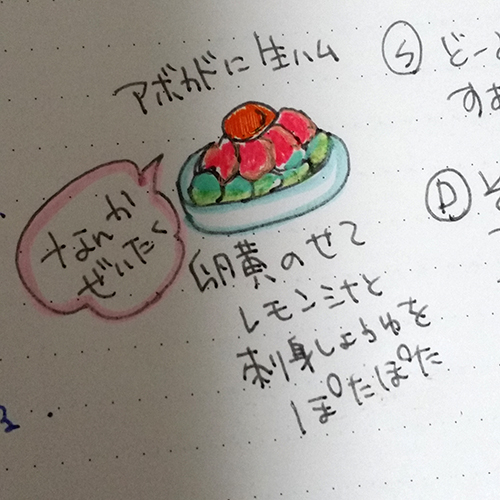 アボカドに生ハム
なんか
ぜいたく
卵黄のせて
レモン汁と
刺身しょうゆを
ぽたぽた
S
どー
すあ
D